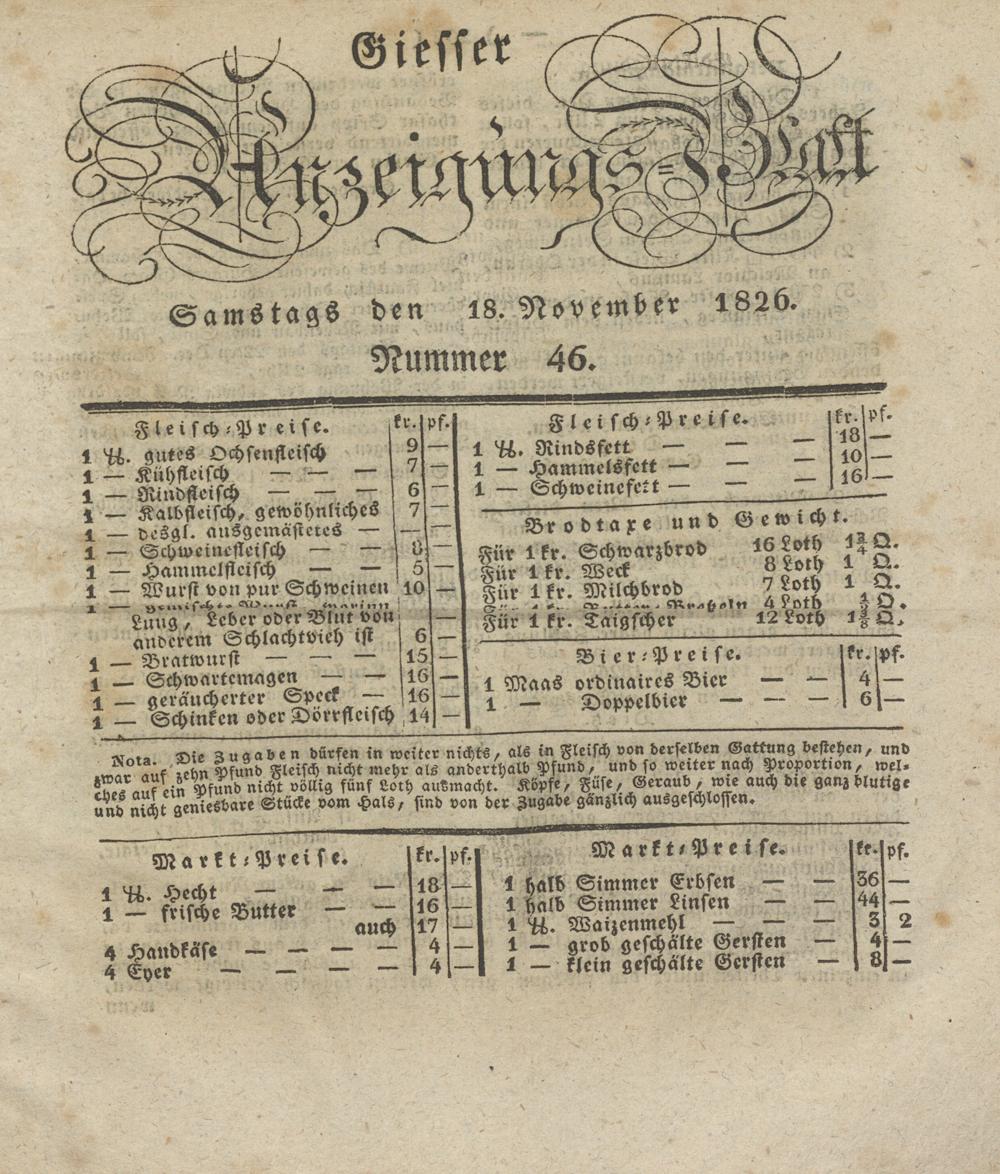 Giesser
Anzeigungs=Blatt
Samstags den 18. November 1826.
Nummer 46.
Fleisch=Preise. kr. pf.
1 ℔. gutes Ochsenfleisch 9 —
1 — Kühfleisch — — — 7 —
1 — Rindfleisch — — — 6 —
1 — Kalbfleisch, gewöhnliches 7 —
1 — desgl. ausgemästetes — — —
1 — Schweinefleisch — — 8 —
1 — Hammelfleisch — — 5 —
1 — Wurst von pur Schweinen 10 —
1 — gemischte Wurst, worinn
Lung, Leber oder Blut von
anderem Schlachtvieh ist 6 —
1 — Bratwurst — — — 15 —
1 — Schwartemagen — — 16 —
1 — geräucherter Speck — 16 —
1 — Schinken oder Dörrfleisch 14 —
Fleisch=Preise. kr. pf.
1 ℔. Rindsfett — — — 18 —
1 — Hammelsfett — — — 10 —
1 — Schweinefett — — — 16 —
Brodtaxe und Gewicht.
Für 1 kr. Schwarzbrod 16 Loth 1¾ Q.
Für 1 kr. Weck 8 Loth 1 Q.
Für 1 kr. Milchbrod 7 Loth 1 Q.
4 Loth Q.
Für 1 kr. Taigscher 12 Loth Q.
Bier=Preise. kr. pf.
1 Maas ordinaires Bier — — 4 —
1 — Doppelbier — — 6 —
Nota. Die Zugaben dürfen in weiter nichts, als in Fleisch von derselben Gattung bestehen, und
zwar auf zehn Pfund Fleisch nicht mehr als anderthalb Pfund, und so weiter nach Proportion, wel=
ches auf ein Pfund nicht völlig fünf Loth ausmacht. Köpfe, Füse, Geraub, wie auch die ganz blutige
und nicht geniesbare Stücke vom Hals, sind von der Zugabe gänzlich ausgeschlossen.
Markt=Preise. kr. pf.
1 ℔. Hecht — — — 18 —
1 — frische Butter — — 16 —
auch 17 —
4 Handkäse — — — — 4 —
4 Eyer — — — — 4 —
Markt=Preise. kr. pf.
1 halb Simmer Erbsen — — 36 —
1 halb Simmer Linsen — — 44 —
1 ℔. Waizenmehl — — — 3 2
1 — grob geschälte Gersten — 4 —
1 — klein geschälte Gersten — 8 —